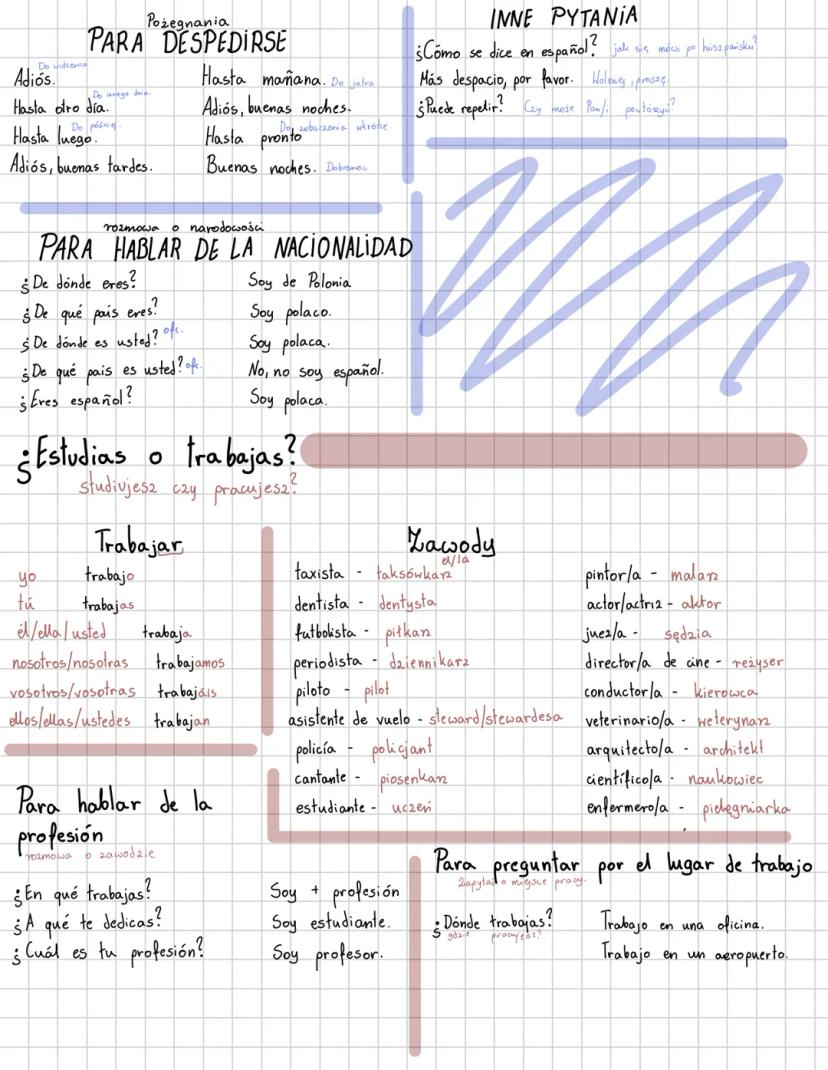 Pożegnania
PARA DESPEDIRSE
Do widzenia
Adiós.
Do innego dnia.
Hasta otro día.
Do później.
Hasta luego.
Adiós, buenas tardes.
Hasta mañana. Do jutra
Adiós, buenas noches.
Do zobaczenia wkrótce.
Hasta pronto
Buenas noches. Dobranoc
INNE PYTANIA
¿Cómo se dice en español? jak się mówi po hiszpańsku?
Más despacio, por favor. Wolniej, proszę
¿Puede repetir? Czy może Pan/i powtórzyć?
rozmowa o narodowości
PARA HABLAR DE LA NACIONALIDAD
¿De dónde eres? Soy de Polonia
¿De qué país eres? Soy polaco.
¿De dónde es usted? ofc. Soy polaca.
¿De qué país es usted? ofc. No, no soy español.
¿Eres español? Soy polaca.
¿Estudias o trabajas?
studiujesz czy pracujesz?
Trabajar
yo trabajo
tú trabajas
él/ella/usted trabaja
nosotros/nosotras trabajamos
vosotros/vosotras trabajáis
ellos/ellas/ustedes trabajan
Zawody
el/la
taxista - taksówkarz
dentista - dentysta
futbolista - piłkarz
periodista - dziennikarz
piloto - pilot
asistente de vuelo - steward/stewardesa
policía - policjant
cantante - piosenkarz
estudiante - uczeń
pintor/a - malarz
actor/actriz - aktor
juez/a - sędzia
director/a de cine - reżyser
conductor/a - kierowca
veterinario/a - weterynarz
arquitecto/a - architekt
científico/a - naukowiec
enfermero/a - pielęgniarka
Para hablar de la
profesión
rozmowa o zawodzie
¿En qué trabajas? Soy + profesión
¿A qué te dedicas? Soy estudiante.
¿Cuál es tu profesión? Soy profesor.
Para preguntar por el lugar de trabajo
Zapytać o miejsce pracy.
¿Dónde trabajas? Trabajo en una oficina.
gdzie pracujesz?
Trabajo en un aeropuerto.